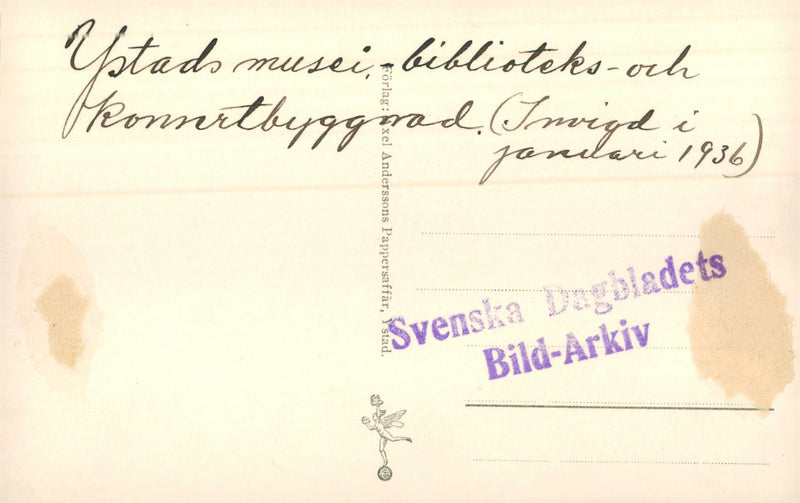 Ystads musei,- biblioteks- och
konsertbyggnad. (Invigd i
januari 1936)
Förlag: Axel Anderssons Pappersaffär, Ystad.
Svenska Dagbladets
Bild-Arkiv